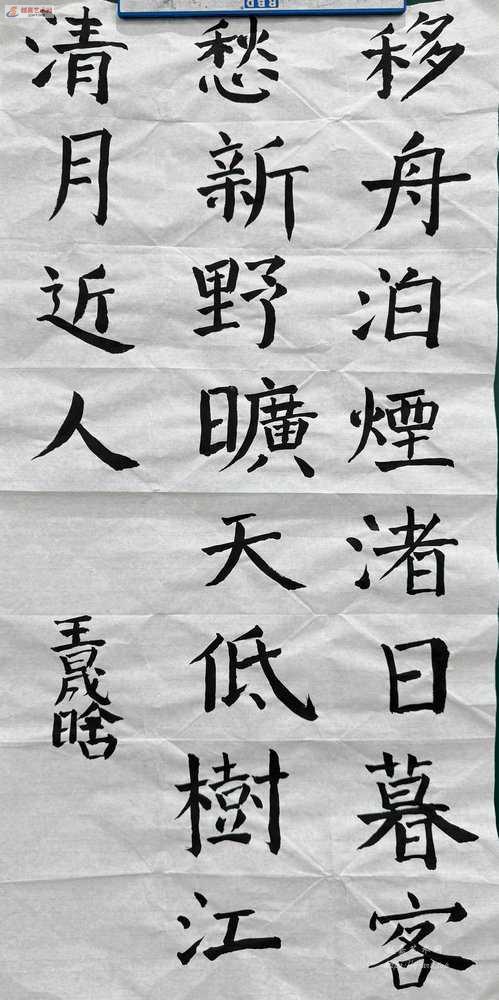 移舟泊煙渚日暮客
愁新野曠天低樹江
清月近人
王晟